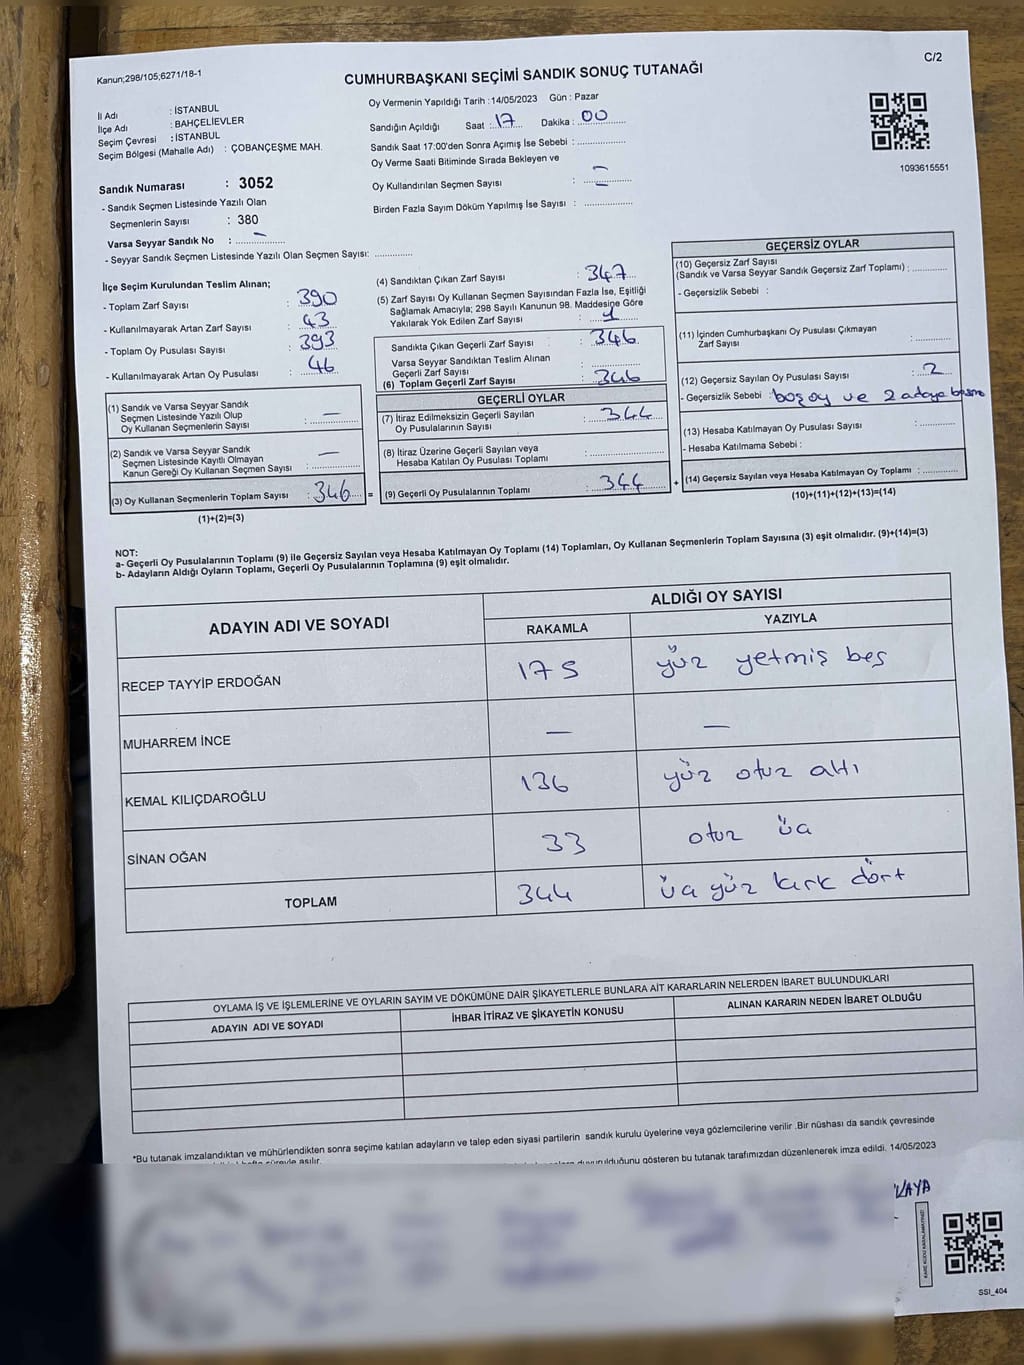 Kanun;298/105;6271/18-1
C/2
CUMHURBAŞKANI SEÇİMİ SANDIK SONUÇ TUTANAĞI
İl Adı : İSTANBUL
İlçe Adı : BAHÇELİEVLER
Seçim Çevresi : İSTANBUL
Seçim Bölgesi (Mahalle Adı) : ÇOBANÇEŞME MAH.
Sandık Numarası : 3052
- Sandık Seçmen Listesinde Yazılı Olan
Seçmenlerin Sayısı : 380
Varsa Seyyar Sandık No : —
- Seyyar Sandık Seçmen Listesinde Yazılı Olan Seçmen Sayısı: ..............
Oy Vermenin Yapıldığı Tarih : 14/05/2023 Gün : Pazar
Sandığın Açıldığı Saat : 17 Dakika : 00
Sandık Saat 17:00'den Sonra Açımış İse Sebebi : ..............
Oy Verme Saati Bitiminde Sırada Bekleyen ve
Oy Kullandırılan Seçmen Sayısı : —
Birden Fazla Sayım Döküm Yapılmış İse Sayısı : ..............
1093615551
İlçe Seçim Kurulundan Teslim Alınan;
- Toplam Zarf Sayısı : 390
- Kullanılmayarak Artan Zarf Sayısı : 43
- Toplam Oy Pusulası Sayısı : 393
- Kullanılmayarak Artan Oy Pusulası : 46
(1) Sandık ve Varsa Seyyar Sandık
Seçmen Listesinde Yazılı Olup
Oy Kullanan Seçmenlerin Sayısı : —
(2) Sandık ve Varsa Seyyar Sandık
Seçmen Listesinde Kayıtlı Olmayan
Kanun Gereği Oy Kullanan Seçmen Sayısı : —
(3) Oy Kullanan Seçmenlerin Toplam Sayısı : 346 =
(1)+(2)=(3)
(4) Sandıktan Çıkan Zarf Sayısı : 347
(5) Zarf Sayısı Oy Kullanan Seçmen Sayısından Fazla İse, Eşitliği
Sağlamak Amacıyla; 298 Sayılı Kanunun 98. Maddesine Göre
Yakılarak Yok Edilen Zarf Sayısı : 1
Sandıkta Çıkan Geçerli Zarf Sayısı : 346
Varsa Seyyar Sandıktan Teslim Alınan
Geçerli Zarf Sayısı : ..............
(6) Toplam Geçerli Zarf Sayısı : 346
GEÇERLİ OYLAR
(7) İtiraz Edilmeksizin Geçerli Sayılan
Oy Pusulalarının Sayısı : 344
(8) İtiraz Üzerine Geçerli Sayılan veya
Hesaba Katılan Oy Pusulası Toplamı : ..............
(9) Geçerli Oy Pusulalarının Toplamı : 344 +
GEÇERSİZ OYLAR
(10) Geçersiz Zarf Sayısı
(Sandık ve Varsa Seyyar Sandık Geçersiz Zarf Toplamı) : ..............
- Geçersizlik Sebebi :
(11) İçinden Cumhurbaşkanı Oy Pusulası Çıkmayan
Zarf Sayısı : ..............
(12) Geçersiz Sayılan Oy Pusulası Sayısı : 2
- Geçersizlik Sebebi : boş oy ve 2 adaya basma
(13) Hesaba Katılmayan Oy Pusulası Sayısı : ..............
- Hesaba Katılmama Sebebi :
(14) Geçersiz Sayılan veya Hesaba Katılmayan Oy Toplamı : ..............
(10)+(11)+(12)+(13)=(14)
NOT:
a- Geçerli Oy Pusulalarının Toplamı (9) ile Geçersiz Sayılan veya Hesaba Katılmayan Oy Toplamı (14) Toplamları, Oy Kullanan Seçmenlerin Toplam Sayısına (3) eşit olmalıdır. (9)+(14)=(3)
b- Adayların Aldığı Oyların Toplamı, Geçerli Oy Pusulalarının Toplamına (9) eşit olmalıdır.
ADAYIN ADI VE SOYADI ALDIĞI OY SAYISI
RAKAMLA YAZIYLA
RECEP TAYYİP ERDOĞAN 175 yüz yetmiş beş
MUHARREM İNCE — —
KEMAL KILIÇDAROĞLU 136 yüz otuz altı
SİNAN OĞAN 33 otuz üç
TOPLAM 344 üç yüz kırk dört
OYLAMA İŞ VE İŞLEMLERİNE VE OYLARIN SAYIM VE DÖKÜMÜNE DAİR ŞİKAYETLERLE BUNLARA AİT KARARLARIN NELERDEN İBARET BULUNDUKLARI
ADAYIN ADI VE SOYADI İHBAR İTİRAZ VE ŞİKAYETİN KONUSU ALINAN KARARIN NEDEN İBARET OLDUĞU
*Bu tutanak imzalandıktan ve mühürlendikten sonra seçime katılan adayların ve talep eden siyasi partilerin sandık kurulu üyelerine veya gözlemcilerine verilir .Bir nüshası da sandık çevresinde
süreyle asılır. duyurulduğunu gösteren bu tutanak tarafımızdan düzenlenerek imza edildi. 14/05/2023
SSI_404